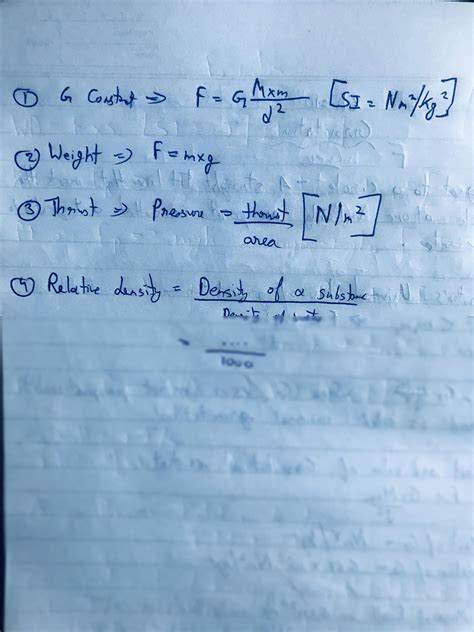 ① G Constant ⇒ F = G M×m/d² [SI = Nm²/kg²]
② Weight ⇒ F = m×g
③ Thrust ⇒ Pressure = thrust/area [N/m²]
④ Relative density = Density of a substance
Density of water
= ....
1000